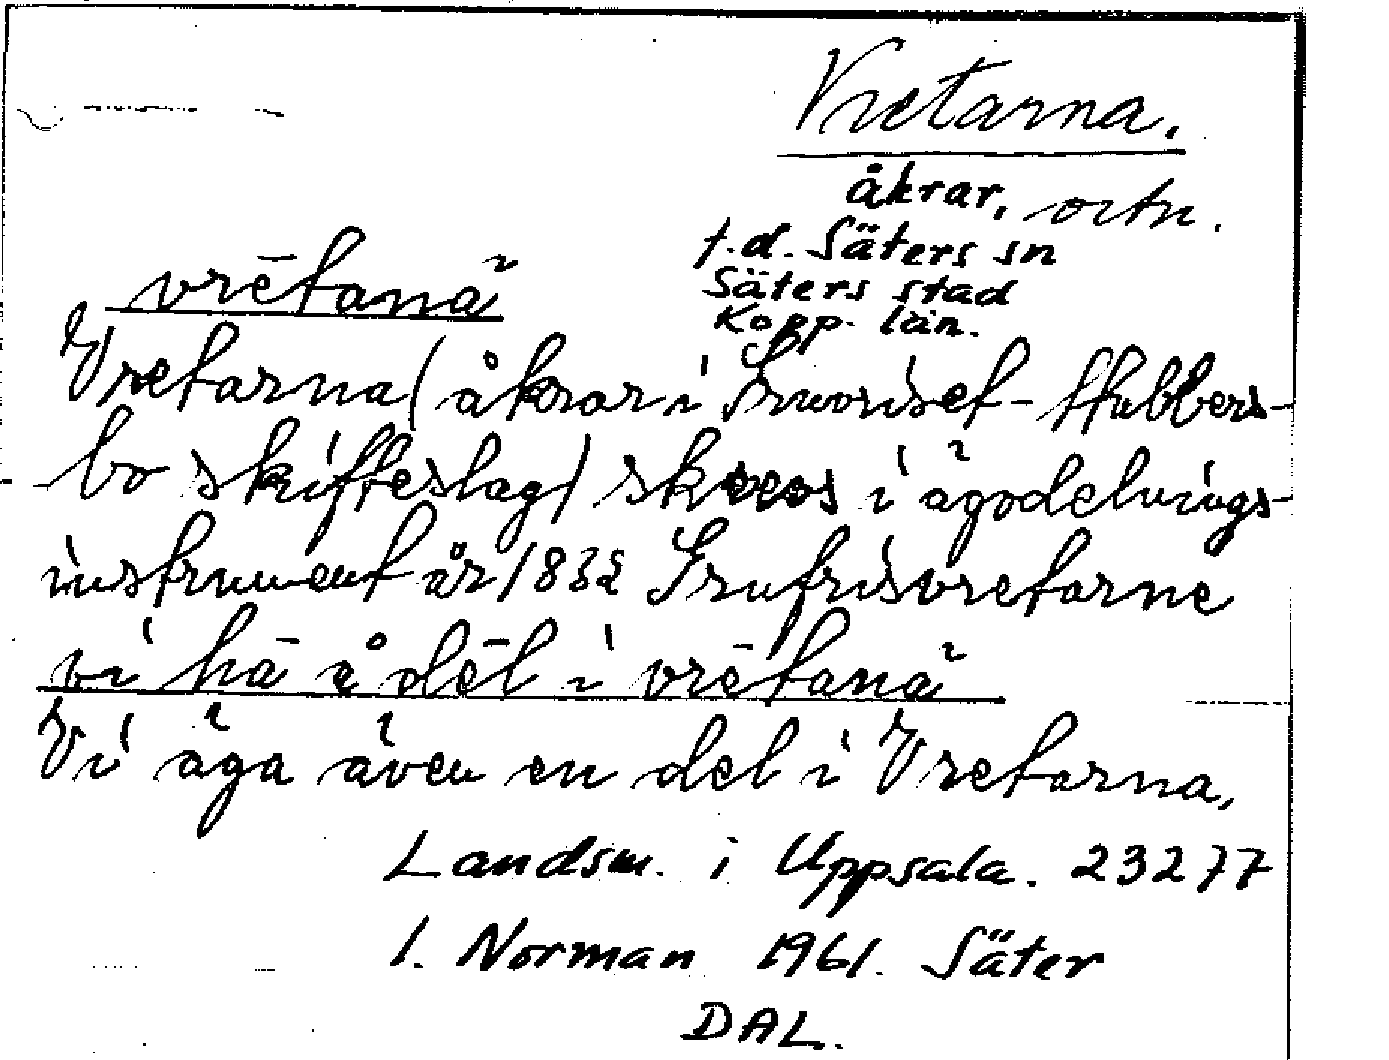 Vretarna.
åkrar, ortn.
f.d. Säters sn
Säters stad
Kopp. län.
vrētanä
Vretarna (åkrar i -Stubbers-
bo skifteslag) skrevs i ägodelnings-
instrument år 1832
vi hā å dēl i vrētanä
Vi äga även en del i Vretarna,
Landsm. i Uppsala. 23277
I. Norman 1961. Säter
DAL.